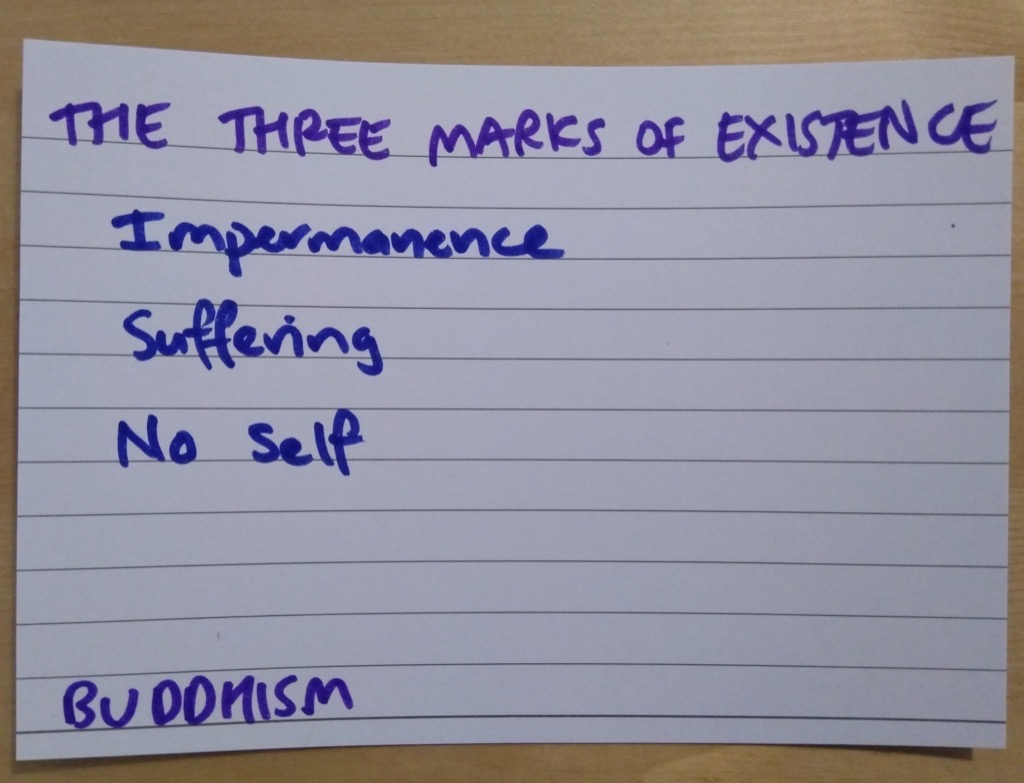 THE THREE MARKS OF EXISTENCE
Impermanence
Suffering
No Self
BUDDHISM